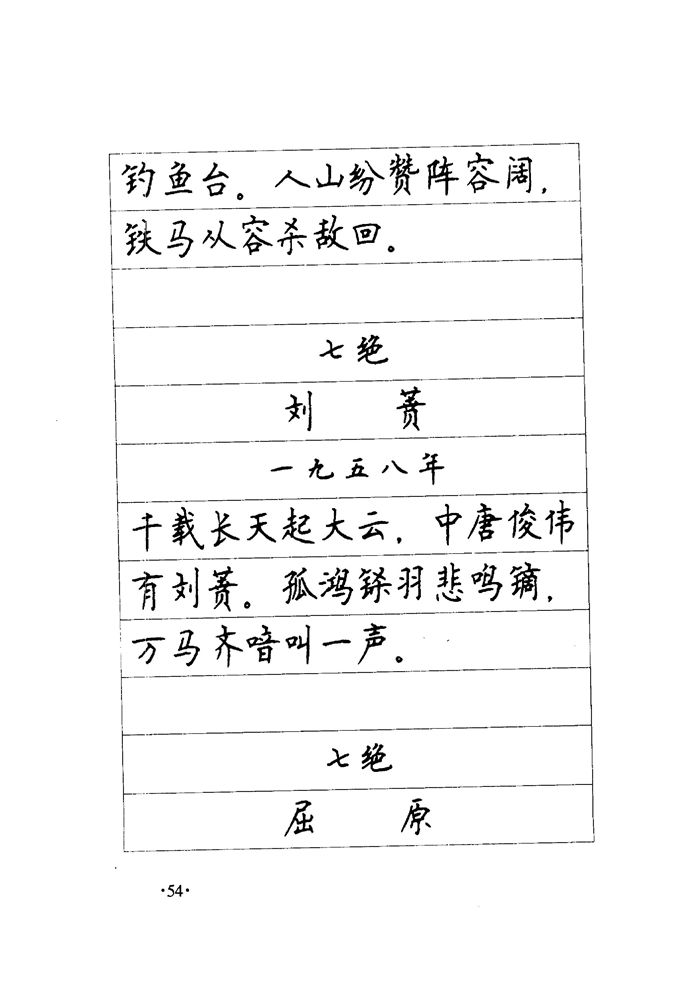 钓鱼台。人山纷赞阵容阔，
铁马从容杀敌回。
七绝
刘 蕡
一九五八年
千载长天起大云，中唐俊伟
有刘蕡。孤鸿铩羽悲鸣镝，
万马齐喑叫一声。
七绝
屈 原
·54·